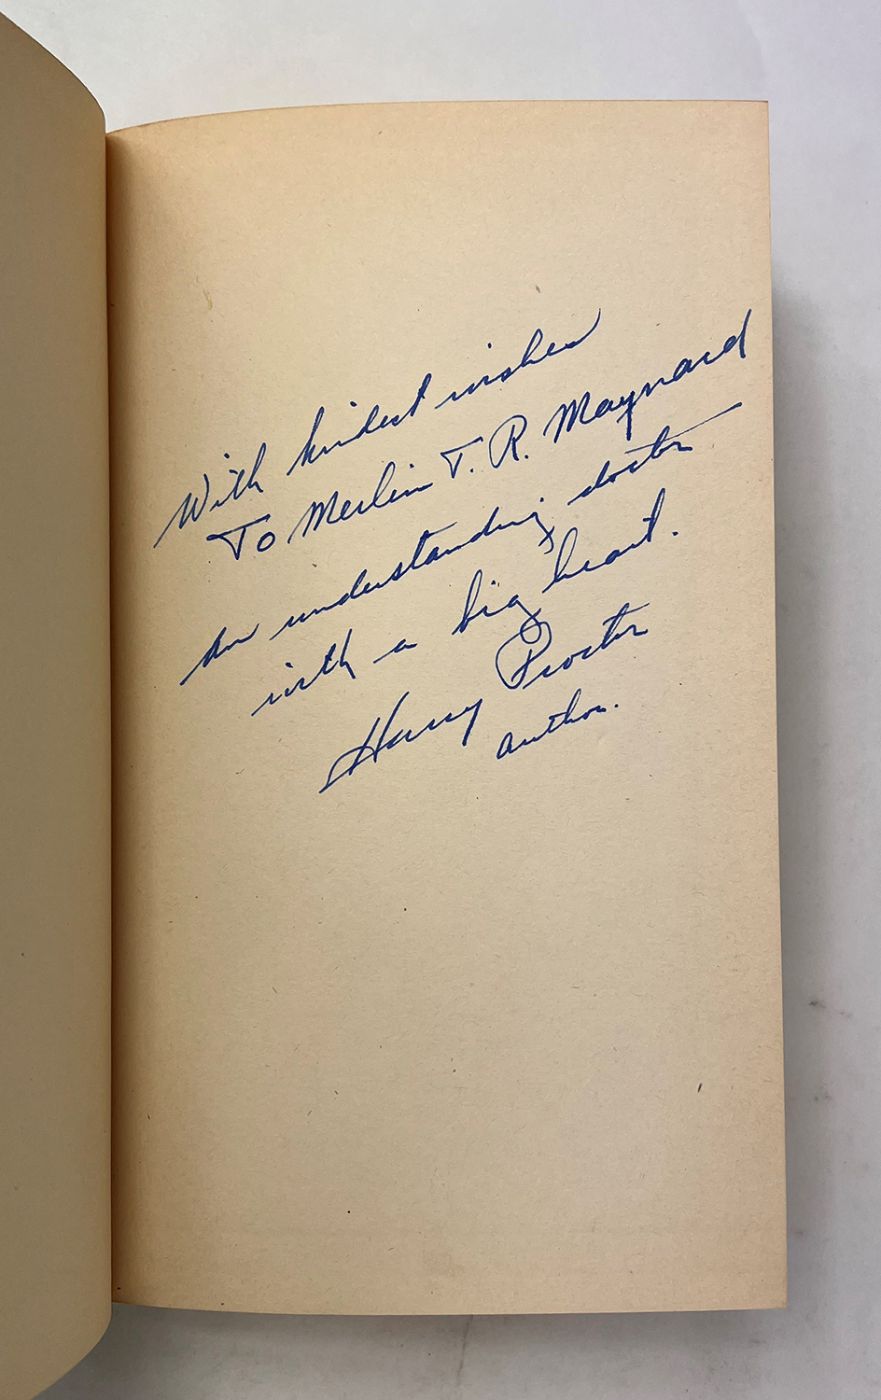 With kindest wishes
To Merlin T. R. Maynard
An understanding doctor
with a big heart.
Harry Proctor
author.